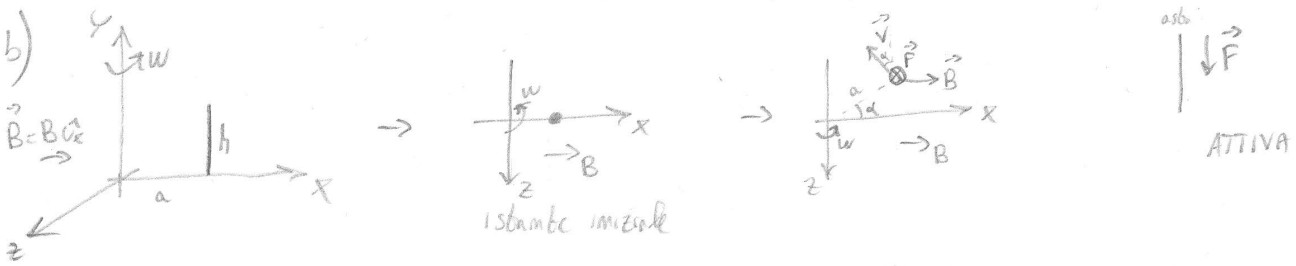 b)
Y
W
B = B Ux
h
a
X
Z
→
W
X
B
Z
istante iniziale
→
V
α
F
B
a
α
X
W
B
Z
asta
F
ATTIVA